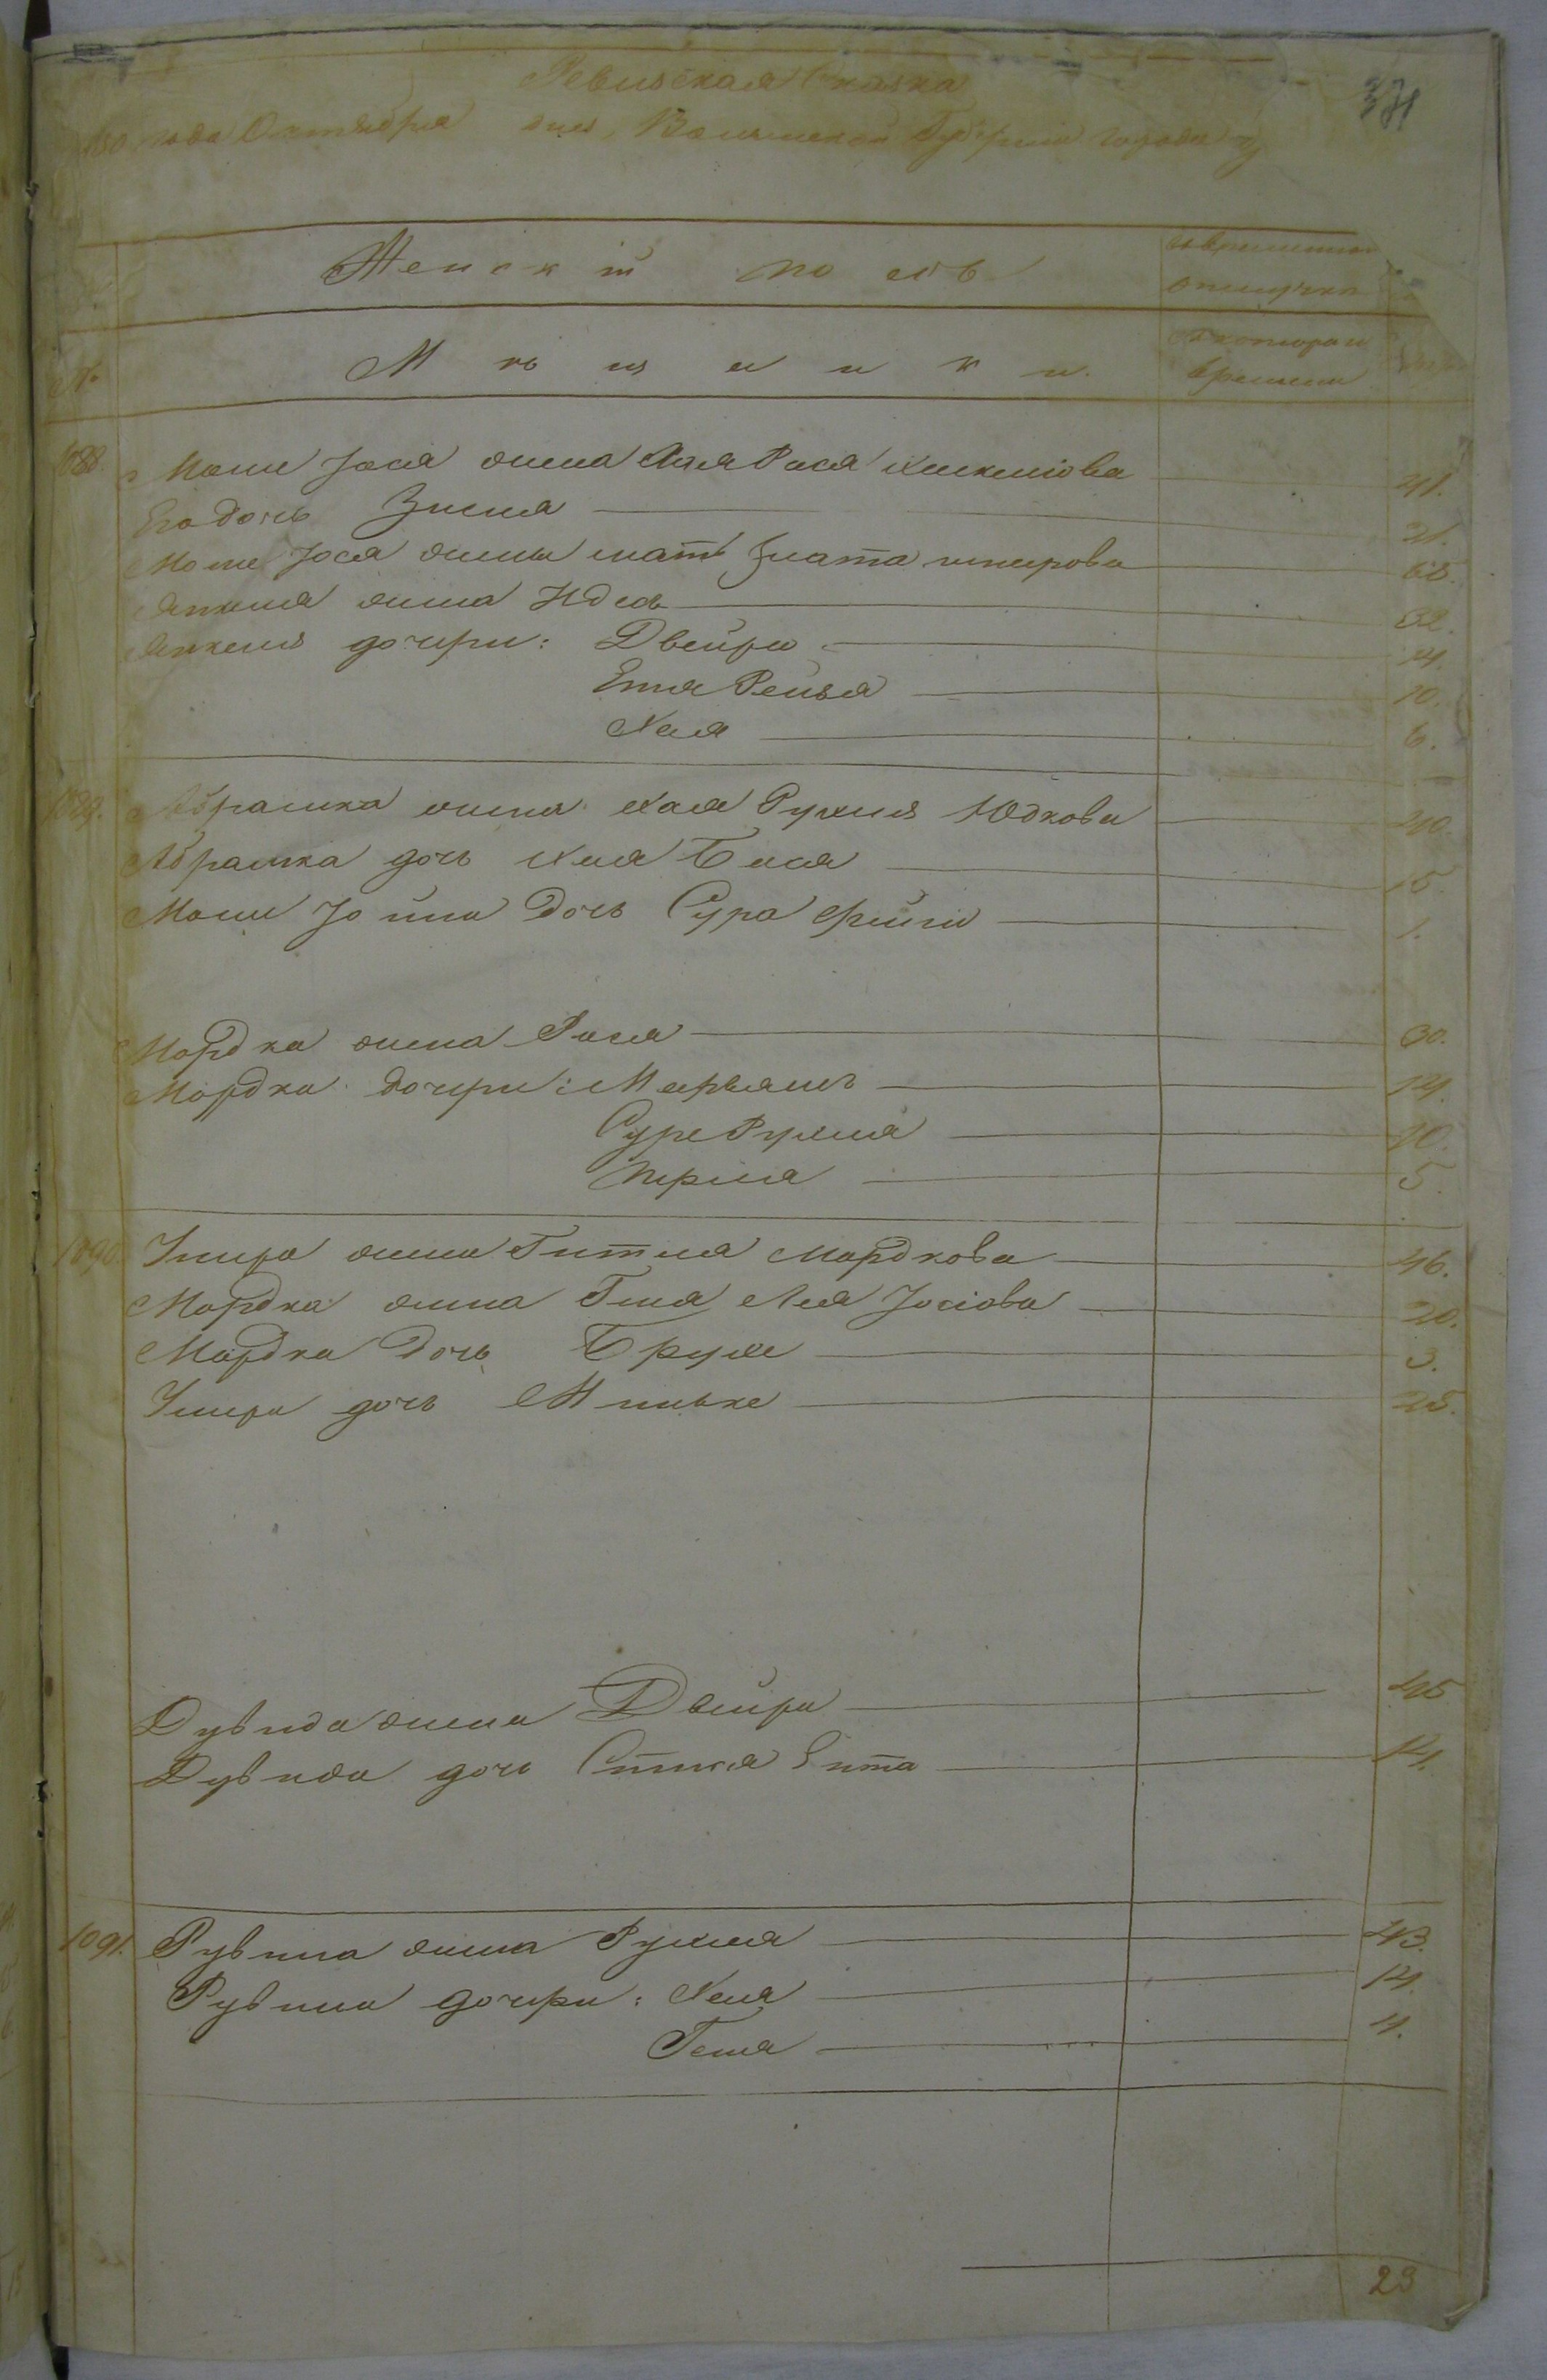 Ревизская Сказка 371
1850 года Октября дня, Волынской Губернии города
Женскій полъ во временной отлучкѣ
№ Мѣщанки. Съ котораго времени
1088. Мошы Іося жена Лея Рися Хискиюва 41.
Его дочь Зисля 21.
Мошы Іося жены мать Злата шмирова 68.
Анкеля жена Идесь 32.
Анкеля дочери: Двейра 14.
Етя Рейзя 10.
Хая 6.
1089. Абрамка жена Хая Рухля Юдкова 40.
Абрамка дочь Хая Бися 15.
Мошы Іойны дочь Сура Фейга 1.
Мордка жена Рися 30.
Мордка дочери: Марьямъ 14.
Суре Рухля 10.
Перля 5.
1090. Умира жена Гитля Мордкова 46.
Мордка жена Гиня Лея Іосіова 20.
Мордка дочь Брухе 3.
Умира дочь Минке 25.
Дувида жена Двейра 45
Дувида дочь Ита 14.
1091. Рувина жена Рухля 43.
Рувина дочери: Хая 14.
Геня 4.
23